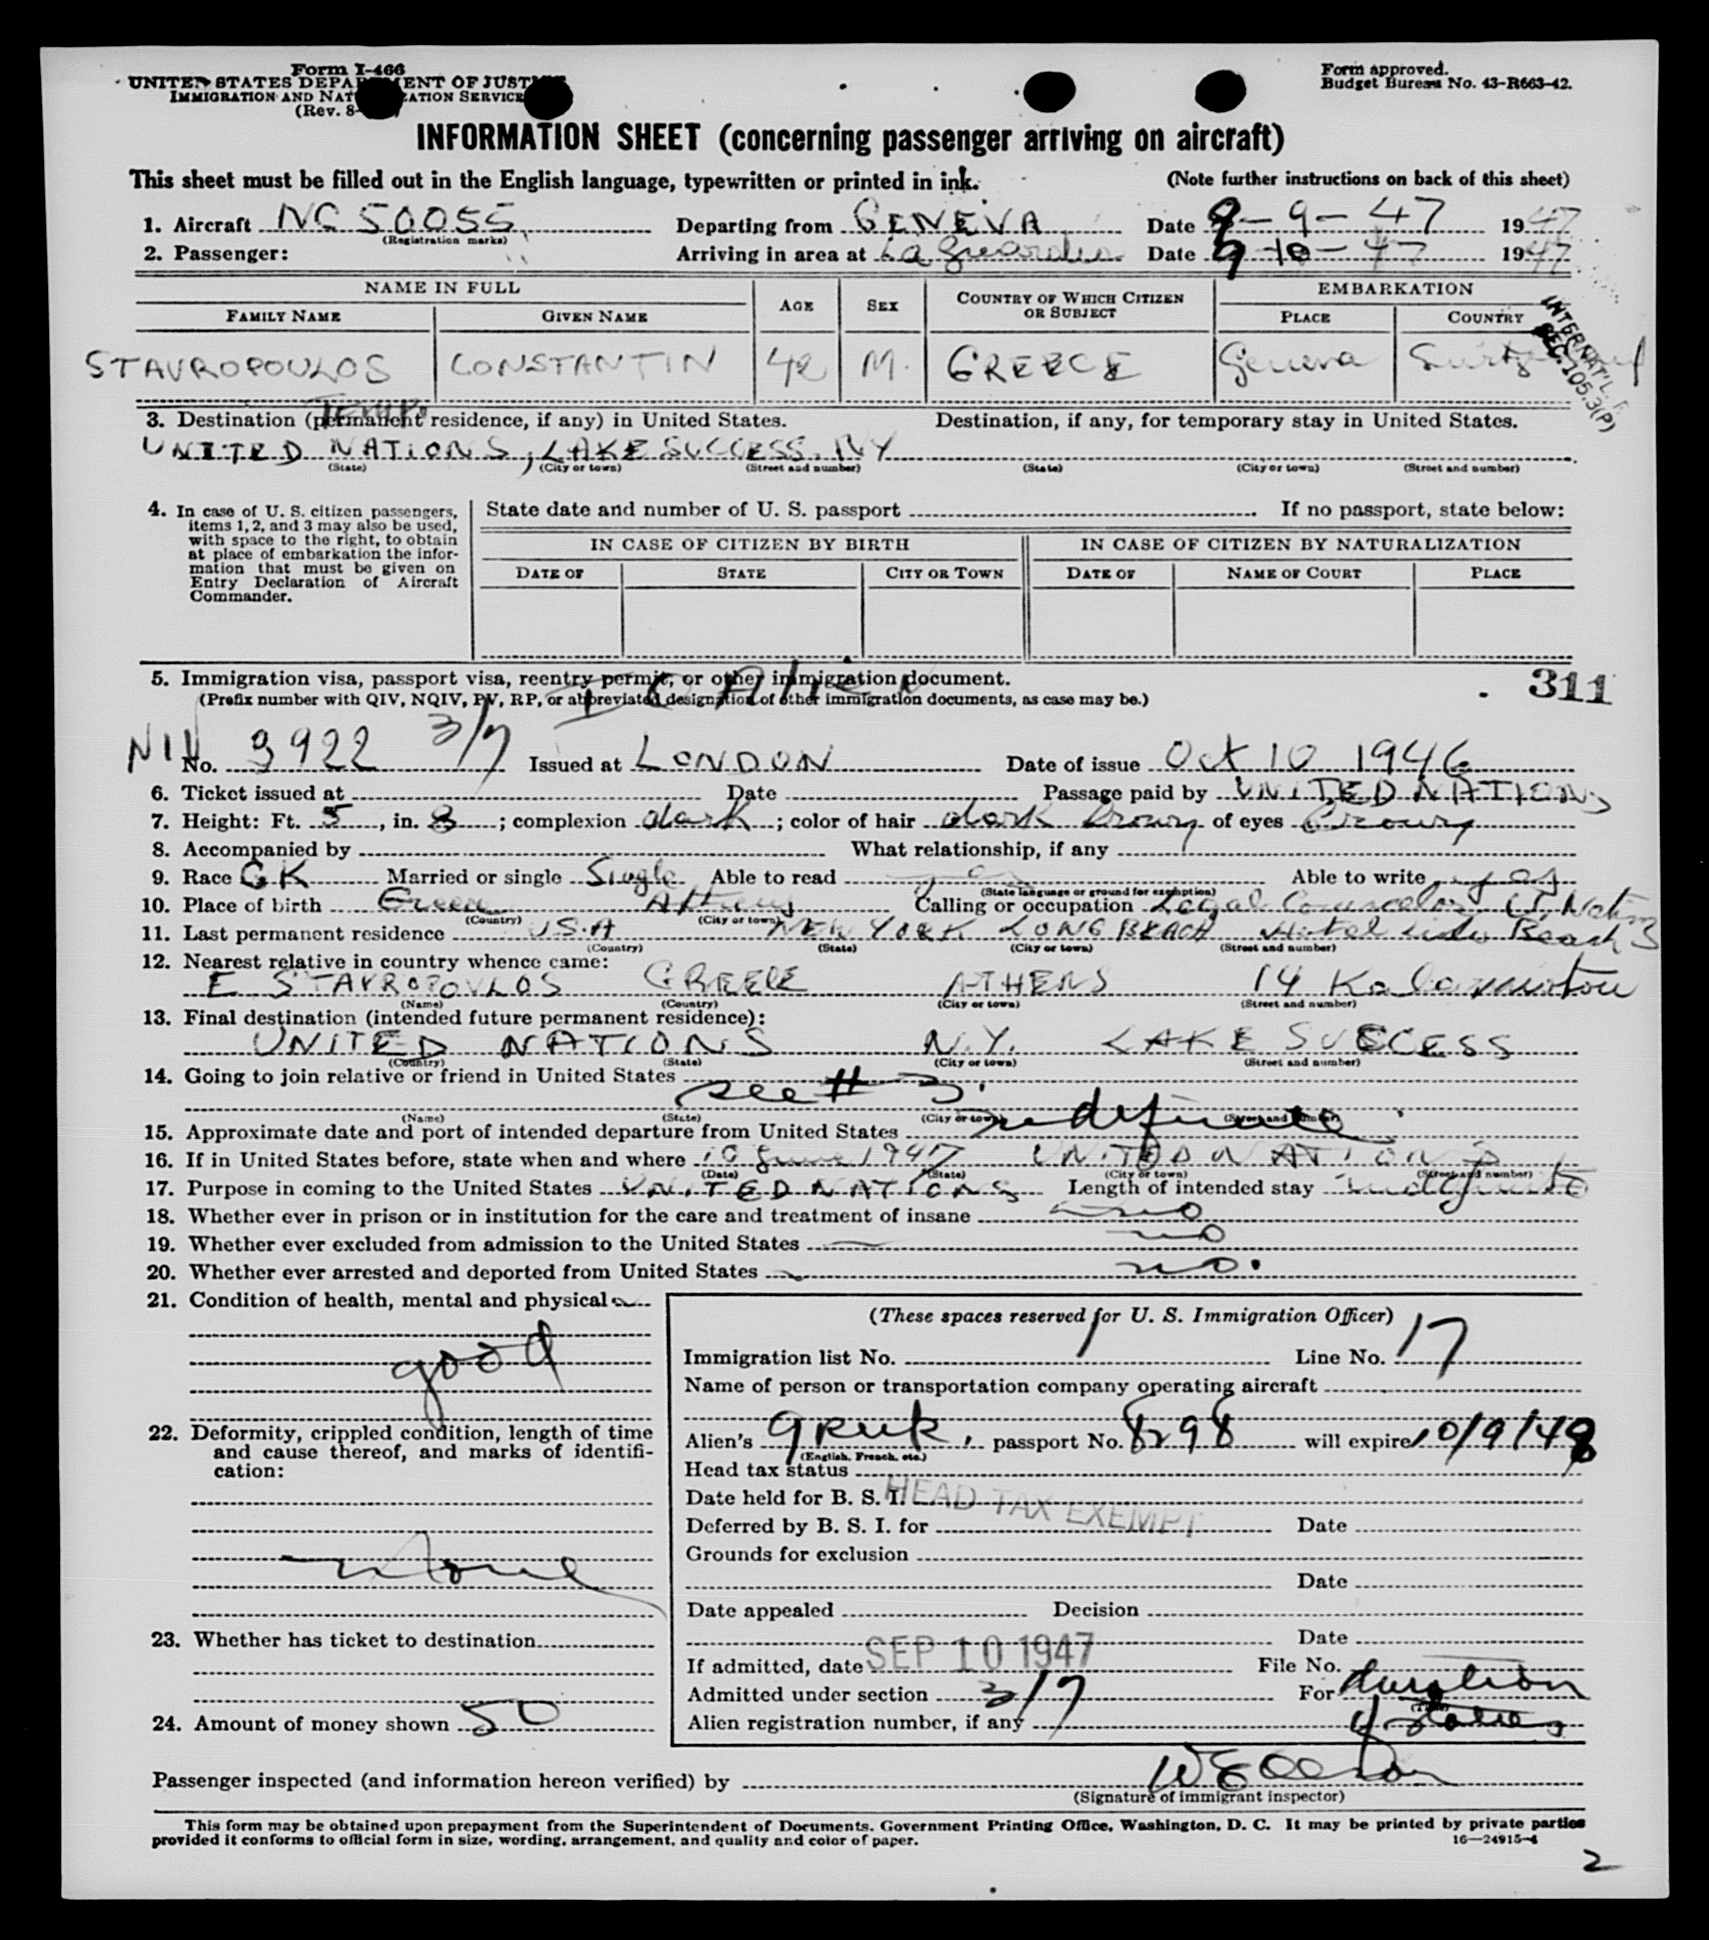 Form I-466
UNITED STATES DEPARTMENT OF JUSTICE
IMMIGRATION AND NATURALIZATION SERVICE
(Rev. 8-
Form approved.
Budget Bureau No. 43-R663-42.
INFORMATION SHEET (concerning passenger arriving on aircraft)
This sheet must be filled out in the English language, typewritten or printed in ink. (Note further instructions on back of this sheet)
1. Aircraft NC 50055 (Registration marks) Departing from GENEVA Date 9-9-47 1947
2. Passenger: Arriving in area at La Guardia Date 9-10-47 1947
NAME IN FULL AGE SEX COUNTRY OF WHICH CITIZEN OR SUBJECT EMBARKATION
FAMILY NAME GIVEN NAME PLACE COUNTRY
STAVROPOULOS CONSTANTIN 42 M. GREECE Geneva
INTERNAT'L
SEC. 105.3(P)
Temp.
3. Destination (permanent residence, if any) in United States. Destination, if any, for temporary stay in United States.
UNITED NATIONS, LAKE SUCCESS. NY
(State) (City or town) (Street and number) (State) (City or town) (Street and number)
4. In case of U. S. citizen passengers, items 1, 2, and 3 may also be used, with space to the right, to obtain at place of embarkation the information that must be given on Entry Declaration of Aircraft Commander.
State date and number of U. S. passport If no passport, state below:
IN CASE OF CITIZEN BY BIRTH IN CASE OF CITIZEN BY NATURALIZATION
DATE OF STATE CITY OR TOWN DATE OF NAME OF COURT PLACE
5. Immigration visa, passport visa, reentry permit, or other immigration document.
(Prefix number with QIV, NQIV, PV, RP, or abbreviated designation of other immigration documents, as case may be.)
IO Alien
311
NIV No. 3922 3/7 Issued at LONDON Date of issue Oct 10 1946
6. Ticket issued at Date Passage paid by UNITED NATIONS
7. Height: Ft. 5, in. 8; complexion dark; color of hair dark brown of eyes Brown
8. Accompanied by What relationship, if any
9. Race GK Married or single Single Able to read yes (State language or ground for exemption) Able to write yes
10. Place of birth Greece Athens Calling or occupation Legal Counselor U. Nations
(Country) (City or town)
11. Last permanent residence USA NEW YORK LONG BEACH Hotel Lido Beach
(Country) (State) (City or town) (Street and number)
12. Nearest relative in country whence came:
E STAVROPOULOS GREECE ATHENS 14
(Name) (Country) (City or town) (Street and number)
13. Final destination (intended future permanent residence):
UNITED NATIONS N.Y. LAKE SUCCESS
(Country) (State) (City or town) (Street and number)
14. Going to join relative or friend in United States
see # 3.
(Name) (State) (City or town) (Street and number)
15. Approximate date and port of intended departure from United States indefinite
16. If in United States before, state when and where 10 June 1947 UNITED NATIONS
(Date) (State) (City or town) (Street and number)
17. Purpose in coming to the United States UNITED NATIONS Length of intended stay indefinite
18. Whether ever in prison or in institution for the care and treatment of insane no
19. Whether ever excluded from admission to the United States no
20. Whether ever arrested and deported from United States no.
21. Condition of health, mental and physical
good
22. Deformity, crippled condition, length of time and cause thereof, and marks of identification:
none
23. Whether has ticket to destination
24. Amount of money shown 50
(These spaces reserved for U. S. Immigration Officer)
Immigration list No. 1 Line No. 17
Name of person or transportation company operating aircraft
Alien's Greek, passport No. 8298 will expire 10/9/48
(English, French, etc.)
Head tax status
HEAD TAX EXEMPT
Date held for B. S. I.
Deferred by B. S. I. for Date
Grounds for exclusion
Date
Date appealed Decision
Date
If admitted, date SEP 10 1947 File No.
Admitted under section 3/7 For duration
Alien registration number, if any of status
Passenger inspected (and information hereon verified) by
(Signature of immigrant inspector)
This form may be obtained upon prepayment from the Superintendent of Documents, Government Printing Office, Washington, D. C. It may be printed by private parties
provided it conforms to official form in size, wording, arrangement, and quality and color of paper. 16—24915-4
2